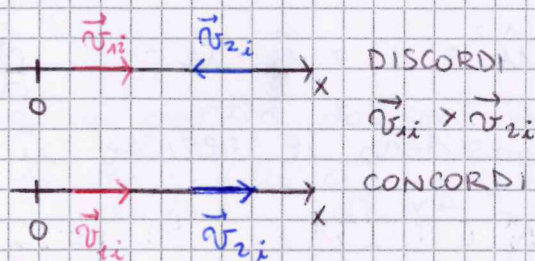 v⃗₁ᵢ v⃗₂ᵢ DISCORDI
0 x
v⃗₁ᵢ > v⃗₂ᵢ
CONCORDI
0 v⃗₁ᵢ v⃗₂ᵢ x